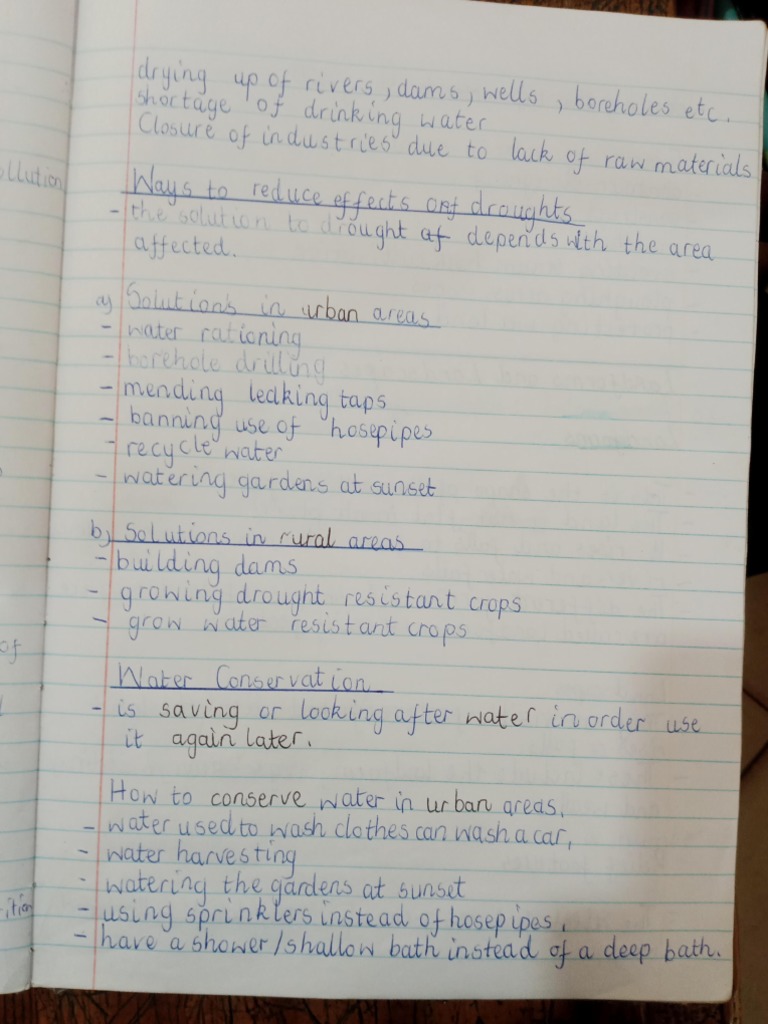 drying up of rivers, dams, wells, boreholes etc.
shortage of drinking water
Closure of industries due to lack of raw materials
Ways to reduce effects of droughts
- the solution to drought depends with the area
affected.
a) Solutions in urban areas
- water rationing
- borehole drilling
- mending leaking taps
- banning use of hosepipes
- recycle water
- watering gardens at sunset
b) Solutions in rural areas
- building dams
- growing drought resistant crops
- grow water resistant crops
Water Conservation
- is saving or looking after water in order use
it again later.
How to conserve water in urban areas.
- water used to wash clothes can wash a car,
- water harvesting
- watering the gardens at sunset
- using sprinklers instead of hosepipes.
- have a shower/shallow bath instead of a deep bath.